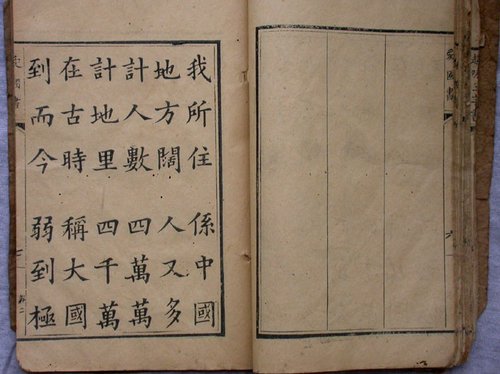 愛國書
我所住 係中國
地方闊 人又多
計人數 四萬萬
計地里 四千萬
在古時 稱大國
到而今 弱到極
愛國書